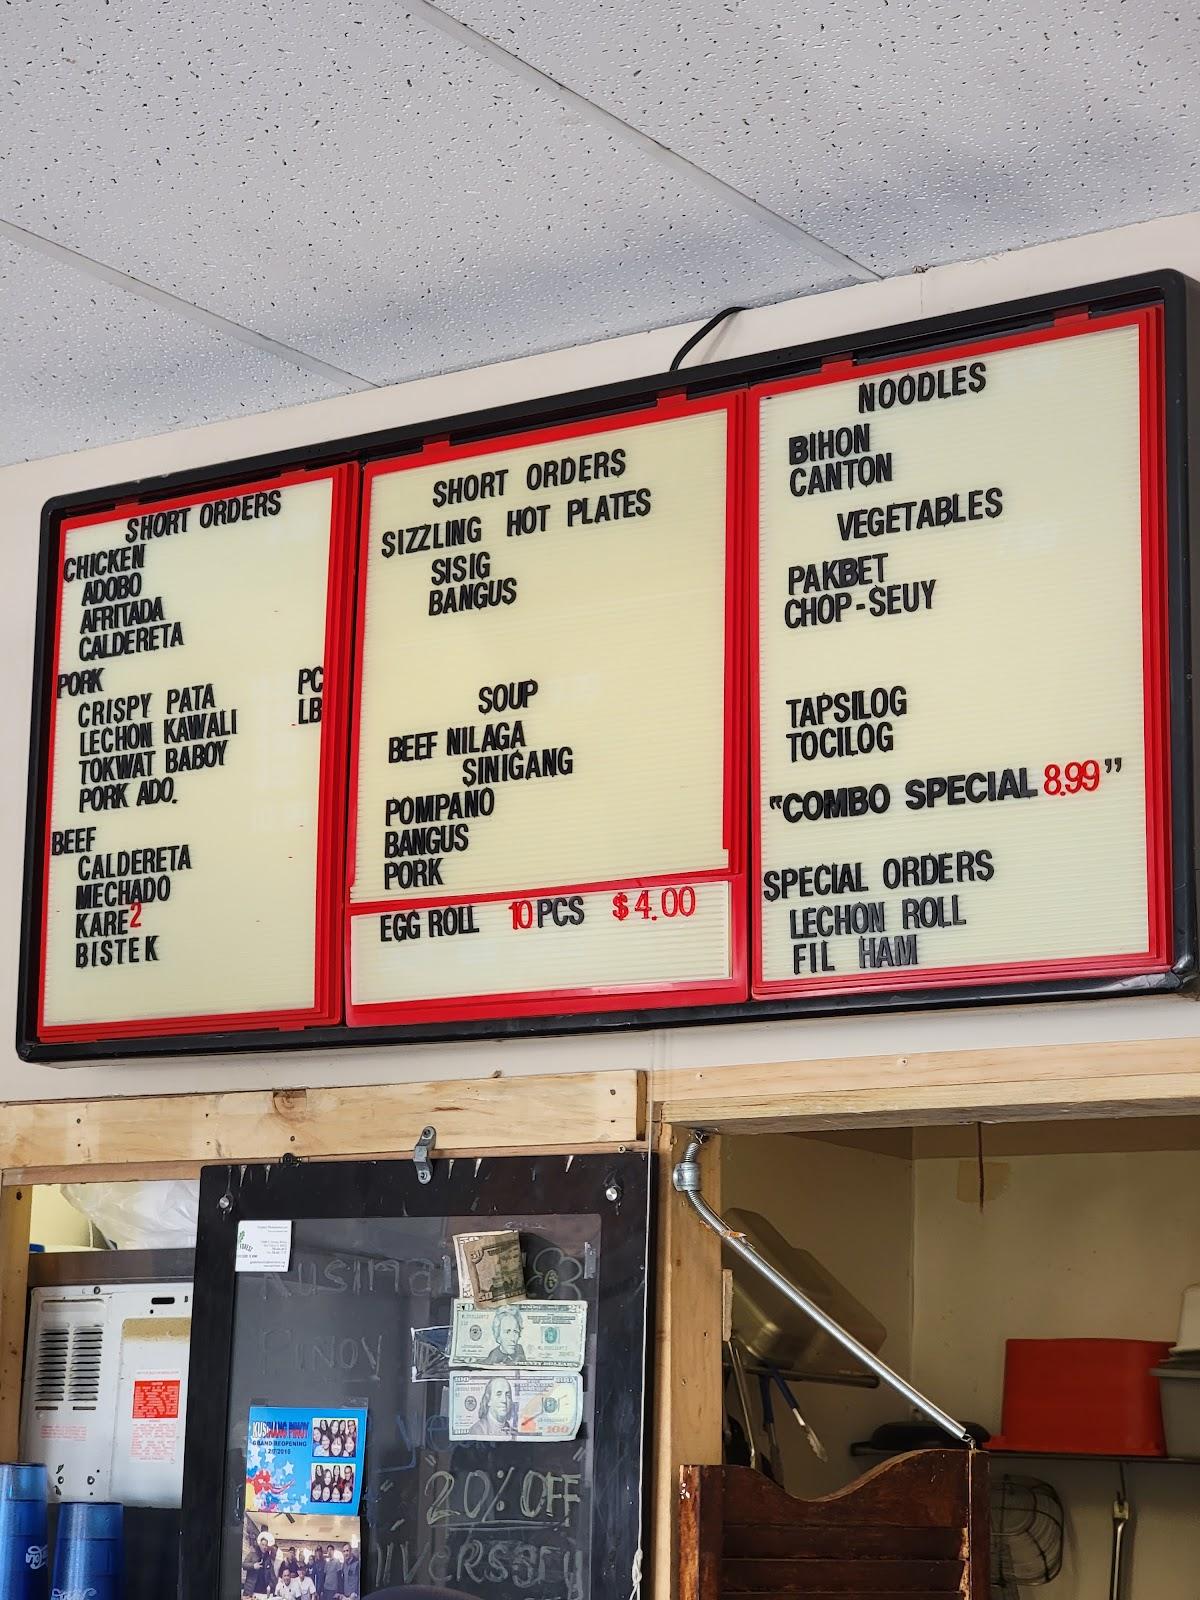 SHORT ORDERS
CHICKEN
ADOBO
AFRITADA
CALDERETA
PORK PC
CRISPY PATA LB
LECHON KAWALI
TOKWAT BABOY
PORK ADO.
BEEF
CALDERETA
MECHADO
KARE2
BISTEK
SHORT ORDERS
SIZZLING HOT PLATES
SISIG
BANGUS
SOUP
BEEF NILAGA
SINIGANG
POMPANO
BANGUS
PORK
EGG ROLL 10 PCS $4.00
NOODLES
BIHON
CANTON
VEGETABLES
PAKBET
CHOP-SEUY
TAPSILOG
TOCILOG
"COMBO SPECIAL 8.99"
SPECIAL ORDERS
LECHON ROLL
FIL HAM
PINOY
20% OFF
KUSINANG PINOY
GRAND REOPENING
TWENTY DOLLARS
100